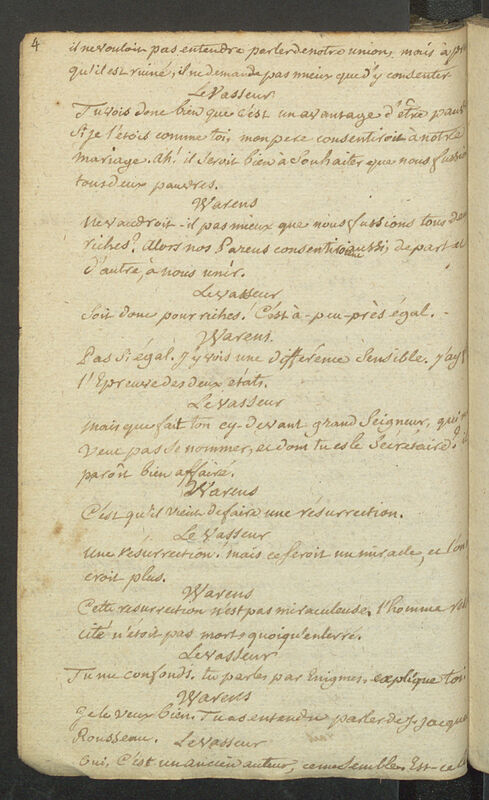 4
il ne vouloit pas entendre parler de notre union, mais à
qu'il est ruiné, il ne demande pas mieux que d'y consentir
Le Vasseur
Tu vois donc bien que c'est un avantage d'être pauv
Si je l'étois comme toi, mon pere consentiroit à notre
mariage. Ah! il seroit bien à Souhaiter que nous fussio
tous deux pauvres.
Warens
Ne vaudroit-il pas mieux que nous fussions tous de
riches? Alors nos Parens consentiroient aussi, de part et
d'autre, à nous unir.
Levasseur
Soit donc pour riches. C'est à-peu-près égal.
Warens.
Pas si égal. J'y vois une différence Sensible. j'ay f
l'Epreuve des deux états.
Levasseur
Mais que fait ton cy-devant grand Seigneur, qui n
Veut pas Se nommer, et dont tu es le Secretaire? il
parôit bien affairé.
Warens
C'est qu'il vient de faire une résurrection.
Le vasseur
Une résurrection! mais ce seroit un miracle, et l'on
croit plus.
Warens
Cette resurrection n'est pas miraculeuse. l'homme res
cité n'étoit pas mort, quoiqu'enterré.
Levasseur
Tu me confonds. tu parles par Enigmes. explique toi
Warens
Je le veux bien. Tu as entendu parler de J. jacque
Rousseau. Levasseur
Oui. C'est un ancien auteur, ce me semble. Est-ce